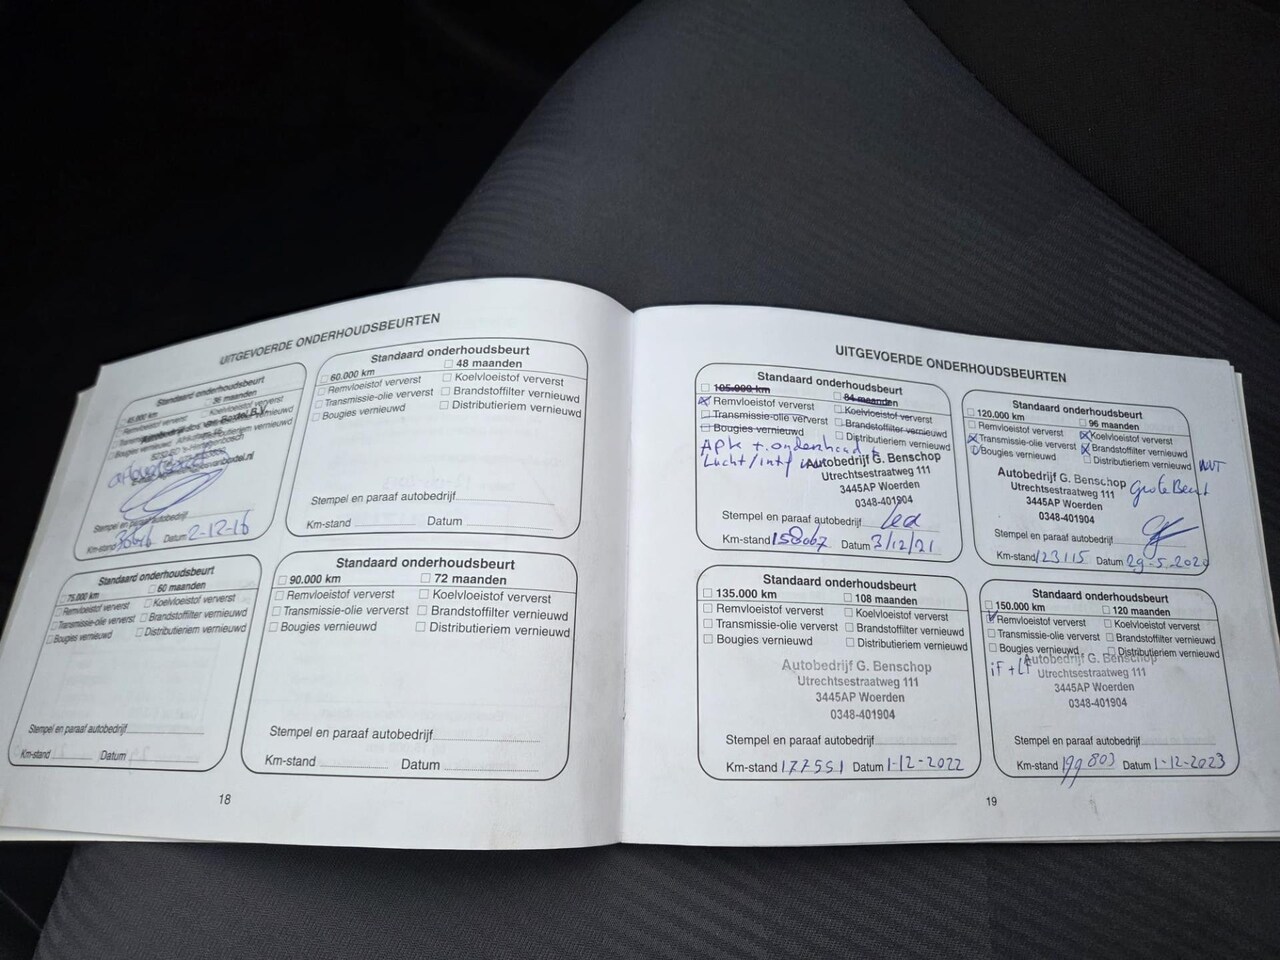 UITGEVOERDE ONDERHOUDSBEURTEN
Standaard onderhoudsbeurt
45.000 km 36 maanden
Remvloeistof ververst Koelvloeistof ververst
Bougies vernieuwd
Stempel en paraaf autobedrijf
Km-stand Datum 2-12-16
Standaard onderhoudsbeurt
60.000 km 48 maanden
Remvloeistof ververst Koelvloeistof ververst
Transmissie-olie ververst Brandstoffilter vernieuwd
Bougies vernieuwd Distributieriem vernieuwd
Stempel en paraaf autobedrijf
Km-stand Datum
Standaard onderhoudsbeurt
75.000 km 60 maanden
Remvloeistof ververst Koelvloeistof ververst
Transmissie-olie ververst Brandstoffilter vernieuwd
Bougies vernieuwd Distributieriem vernieuwd
Stempel en paraaf autobedrijf
Km-stand Datum
Standaard onderhoudsbeurt
90.000 km 72 maanden
Remvloeistof ververst Koelvloeistof ververst
Transmissie-olie ververst Brandstoffilter vernieuwd
Bougies vernieuwd Distributieriem vernieuwd
Stempel en paraaf autobedrijf
Km-stand Datum
18
UITGEVOERDE ONDERHOUDSBEURTEN
Standaard onderhoudsbeurt
105.000 km 84 maanden
Remvloeistof ververst Koelvloeistof ververst
Transmissie-olie ververst Brandstoffilter vernieuwd
Bougies vernieuwd Distributieriem vernieuwd
APK + onderhoud
Lucht/int
Autobedrijf G. Benschop
Utrechtsestraatweg 111
3445AP Woerden
0348-401904
Stempel en paraaf autobedrijf
Km-stand 158067 Datum 3/12/21
Standaard onderhoudsbeurt
120.000 km 96 maanden
Remvloeistof ververst Koelvloeistof ververst
Transmissie-olie ververst Brandstoffilter vernieuwd
Bougies vernieuwd Distributieriem vernieuwd NVT
Autobedrijf G. Benschop
Utrechtsestraatweg 111
3445AP Woerden
0348-401904
Grote Beurt
Stempel en paraaf autobedrijf
Km-stand 123115 Datum 29-5-2020
Standaard onderhoudsbeurt
135.000 km 108 maanden
Remvloeistof ververst Koelvloeistof ververst
Transmissie-olie ververst Brandstoffilter vernieuwd
Bougies vernieuwd Distributieriem vernieuwd
Autobedrijf G. Benschop
Utrechtsestraatweg 111
3445AP Woerden
0348-401904
Stempel en paraaf autobedrijf
Km-stand 177551 Datum 1-12-2022
Standaard onderhoudsbeurt
150.000 km 120 maanden
Remvloeistof ververst Koelvloeistof ververst
Transmissie-olie ververst Brandstoffilter vernieuwd
Bougies vernieuwd Distributieriem vernieuwd
iF + LF
Autobedrijf G. Benschop
Utrechtsestraatweg 111
3445AP Woerden
0348-401904
Stempel en paraaf autobedrijf
Km-stand 199803 Datum 1-12-2023
19